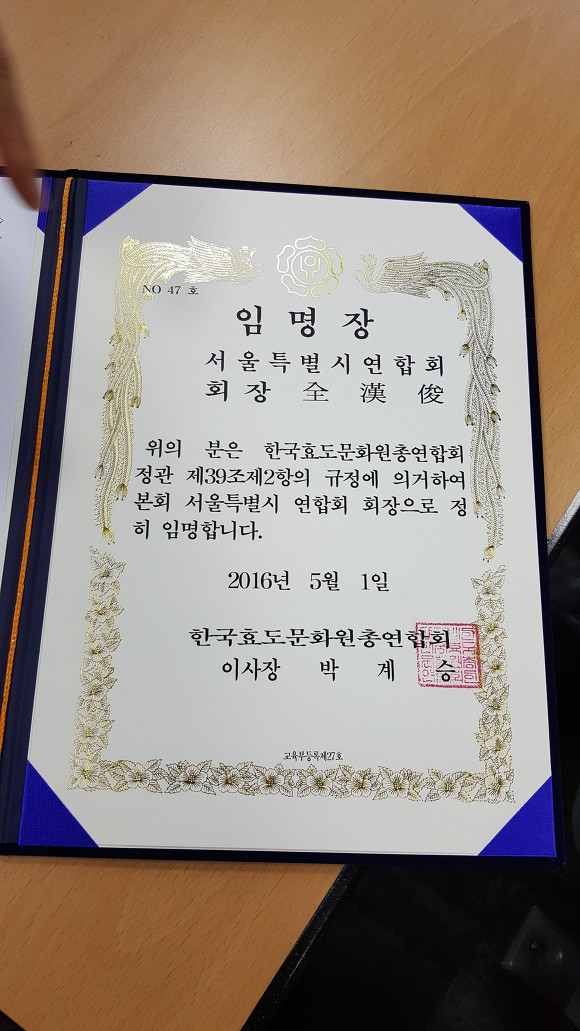 NO 47 호
임명장
서울특별시연합회
회장 全漢俊
위의 분은 한국효도문화원총연합회
정관 제39조제2항의 규정에 의거하여
본회 서울특별시 연합회 회장으로 정
히 임명합니다.
2016년 5월 1일
한국효도문화원총연합회
이사장 박계승
교육부등록제27호